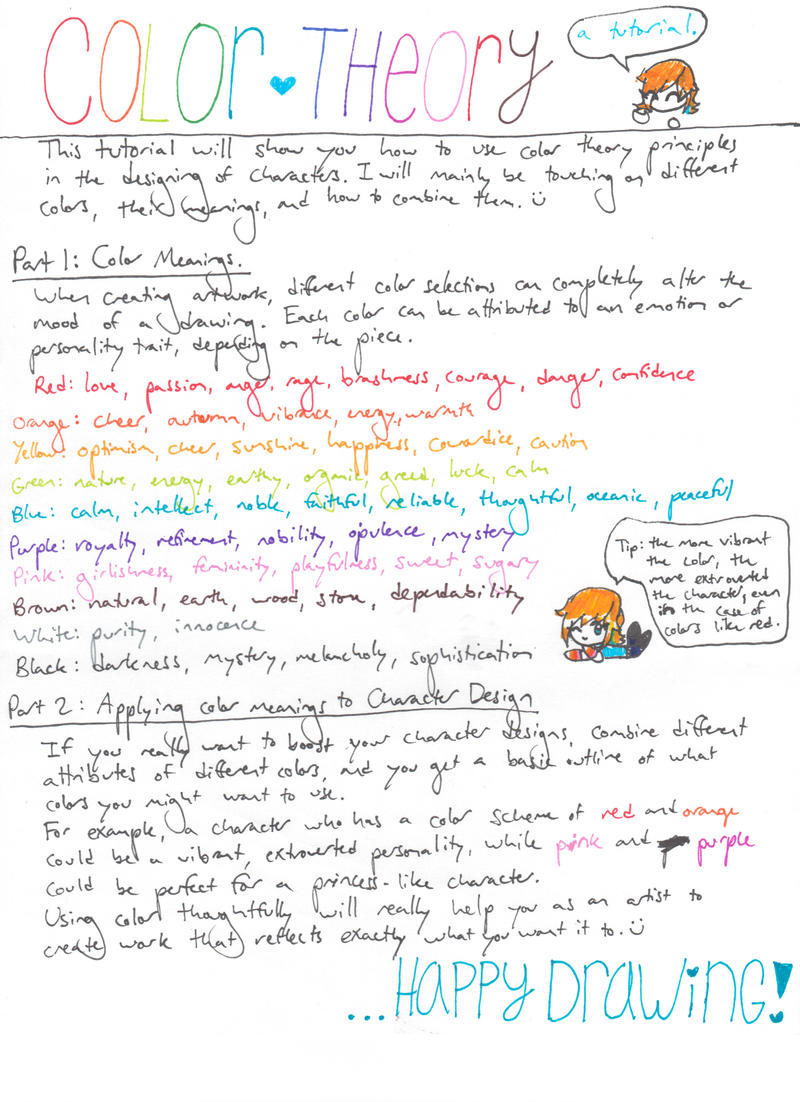 COLOR THEORY
a tutorial.
This tutorial will show you how to use color theory principles
in the designing of characters. I will mainly be touching on different
colors, their meanings, and how to combine them. :)
Part 1: Color Meanings.
When creating artwork, different color selections can completely alter the
mood of a drawing. Each color can be attributed to an emotion or
personality trait, depending on the piece.
Red: love, passion, anger, rage, brashness, courage, danger, confidence
Orange: cheer, autumn, vibrance, energy, warmth
Yellow: optimism, cheer, sunshine, happiness, cowardice, caution
Green: nature, energy, earthy, organic, greed, luck, calm
Blue: calm, intellect, noble, faithful, reliable, thoughtful, oceanic, peaceful
Purple: royalty, refinement, nobility, opulence, mystery
Pink: girlishness, femininity, playfulness, sweet, sugary
Brown: natural, earth, wood, stone, dependability
White: purity, innocence
Black: darkness, mystery, melancholy, sophistication
Tip: the more vibrant
the color, the
more extroverted
the character, even
in the case of
colors like red.
Part 2: Applying color meanings to Character Design
If you really want to boost your character designs, combine different
attributes of different colors, and you get a basic outline of what
colors you might want to use.
For example, a character who has a color scheme of red and orange
could be a vibrant, extroverted personality, while pink and purple
could be perfect for a princess-like character.
Using color thoughtfully will really help you as an artist to
create work that reflects exactly what you want it to. :)
...HAPPY DRAWING!